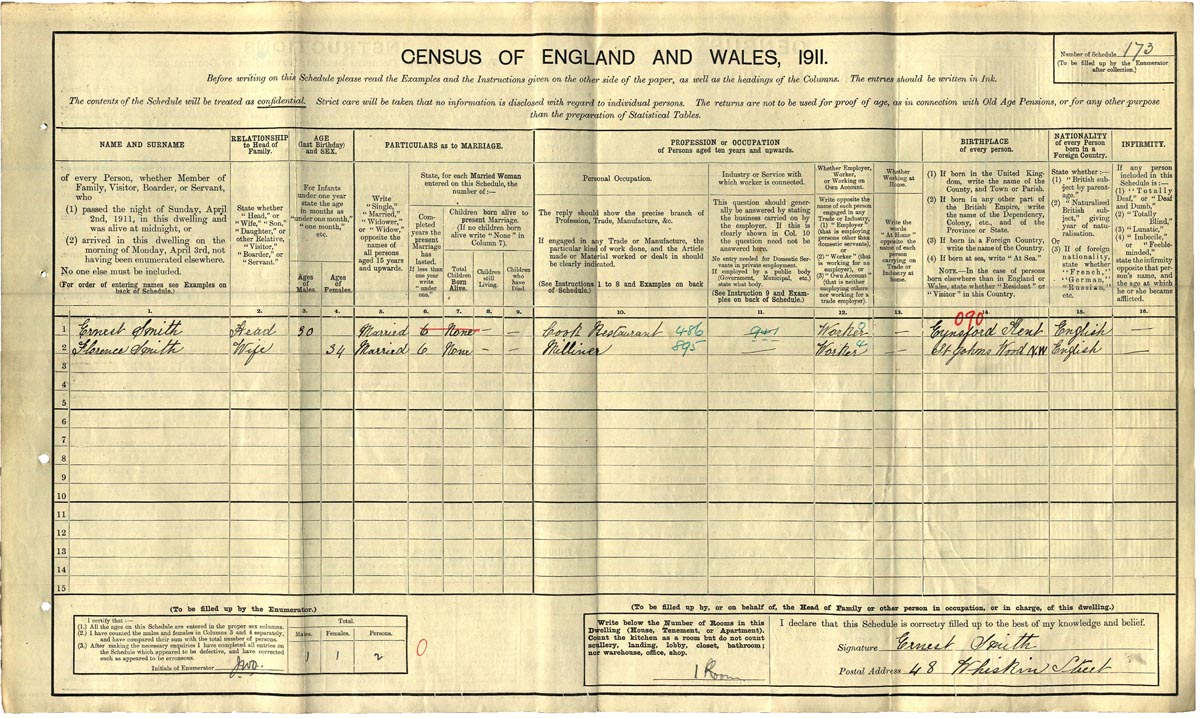 CENSUS OF ENGLAND AND WALES, 1911.
Number of Schedule 173
(To be filled up by the Enumerator
after collection.)
Before writing on this Schedule please read the Examples and the Instructions given on the other side of the paper, as well as the headings of the Columns. The entries should be written in Ink.
The contents of the Schedule will be treated as confidential. Strict care will be taken that no information is disclosed with regard to individual persons. The returns are not to be used for proof of age, as in connection with Old Age Pensions, or for any other purpose
than the preparation of Statistical Tables.
NAME AND SURNAME
of every Person, whether Member of
Family, Visitor, Boarder, or Servant,
who
(1) passed the night of Sunday, April
2nd, 1911, in this dwelling and
was alive at midnight, or
(2) arrived in this dwelling on the
morning of Monday, April 3rd, not
having been enumerated elsewhere.
No one else must be included.
(For order of entering names see Examples on
back of Schedule.)
RELATIONSHIP
to Head of
Family.
State whether
"Head," or
"Wife," "Son,"
"Daughter," or
other Relative,
"Visitor,"
"Boarder," or
"Servant."
AGE
(last Birthday)
and SEX.
For Infants
under one year
state the age
in months as
"under one month,"
"one month,"
etc.
Ages
of
Males.
Ages
of
Females.
PARTICULARS as to MARRIAGE.
Write
"Single,"
"Married,"
"Widower,"
or "Widow,"
opposite the
names of
all persons
aged 15 years
and upwards.
State, for each Married Woman
entered on this Schedule, the
number of:—
Completed
years the
present
Marriage
has
lasted.
If less than
one year
write
"under
one."
Children born alive to
present Marriage.
(If no children born
alive write "None" in
Column 7).
Total
Children
Born
Alive.
Children
still
Living.
Children
who
have Died.
PROFESSION or OCCUPATION
of Persons aged ten years and upwards.
Personal Occupation.
The reply should show the precise branch of
Profession, Trade, Manufacture, &c.
If engaged in any Trade or Manufacture, the
particular kind of work done, and the Article
made or Material worked or dealt in should
be clearly indicated.
(See Instructions 1 to 8 and Examples on back
of Schedule.)
Industry or Service with
which worker is connected.
This question should generally
be answered by stating
the business carried on by
the employer. If this is
clearly shown in Col. 10
the question need not be
answered here.
No entry needed for Domestic Servants
in private employment.
If employed by a public body
(Government, Municipal, etc.)
state what body.
(See Instruction 9 and Examples
on back of Schedule.)
Whether Employer,
Worker,
or Working on
Own Account.
Write opposite the
name of each person
engaged in any
Trade or Industry,
(1) "Employer"
(that is employing
persons other than
domestic servants),
or
(2) "Worker" (that
is working for an
employer), or
(3) "Own Account"
(that is neither
employing others
nor working for a
trade employer).
Whether
Working at
Home.
Write the
words
"At Home"
opposite the
name of each
person
carrying on
Trade or
Industry at
home.
BIRTHPLACE
of every person.
(1) If born in the United Kingdom,
write the name of the
County, and Town or Parish.
(2) If born in any other part of
the British Empire, write
the name of the Dependency,
Colony, etc., and of the
Province or State.
(3) If born in a Foreign Country,
write the name of the Country.
(4) If born at sea, write "At Sea."
NOTE.—In the case of persons
born elsewhere than in England or
Wales, state whether "Resident" or
"Visitor" in this Country.
NATIONALITY
of every Person
born in a
Foreign Country.
State whether:—
(1) "British subject
by parentage."
(2) "Naturalised
British
subject," giving
year of naturalisation.
Or
(3) If of foreign
nationality,
state whether
"French,"
"German,"
"Russian,"
etc.
INFIRMITY.
If any person
included in this
Schedule is:—
(1) "Totally
Deaf," or "Deaf
and Dumb,"
(2) "Totally
Blind,"
(3) "Lunatic,"
(4) "Imbecile,"
or "Feeble-minded,"
state the infirmity
opposite that person's
name, and
the age at which
he or she became
afflicted.
1. 2. 3. 4. 5. 6. 7. 8. 9. 10. 11. 12. 13. 14. 15. 16.
090
1 Ernest Smith Head 30 Married 6 None — — Cook Restaurant 486 Worker — Eynsford Kent English —
2 Florence Smith Wife 34 Married 6 None — — Milliner 895 — Worker — St Johns Wood N.W English —
3
4
5
6
7
8
9
10
11
12
13
14
15
(To be filled up by the Enumerator.)
I certify that:—
(1.) All the ages on this Schedule are entered in the proper sex columns.
(2.) I have counted the males and females in Columns 3 and 4 separately,
and have compared their sum with the total number of persons.
(3.) After making the necessary enquiries I have completed all entries on
the Schedule which appeared to be defective, and have corrected
such as appeared to be erroneous.
Initials of Enumerator
Total.
Males. Females. Persons.
1 1 2
0
(To be filled up by, or on behalf of, the Head of Family or other person in occupation, or in charge, of this dwelling.)
Write below the Number of Rooms in this
Dwelling (House, Tenement, or Apartment).
Count the kitchen as a room but do not count
scullery, landing, lobby, closet, bathroom;
nor warehouse, office, shop.
1 Room
I declare that this Schedule is correctly filled up to the best of my knowledge and belief.
Signature Ernest Smith
Postal Address 48 Whiskin Street